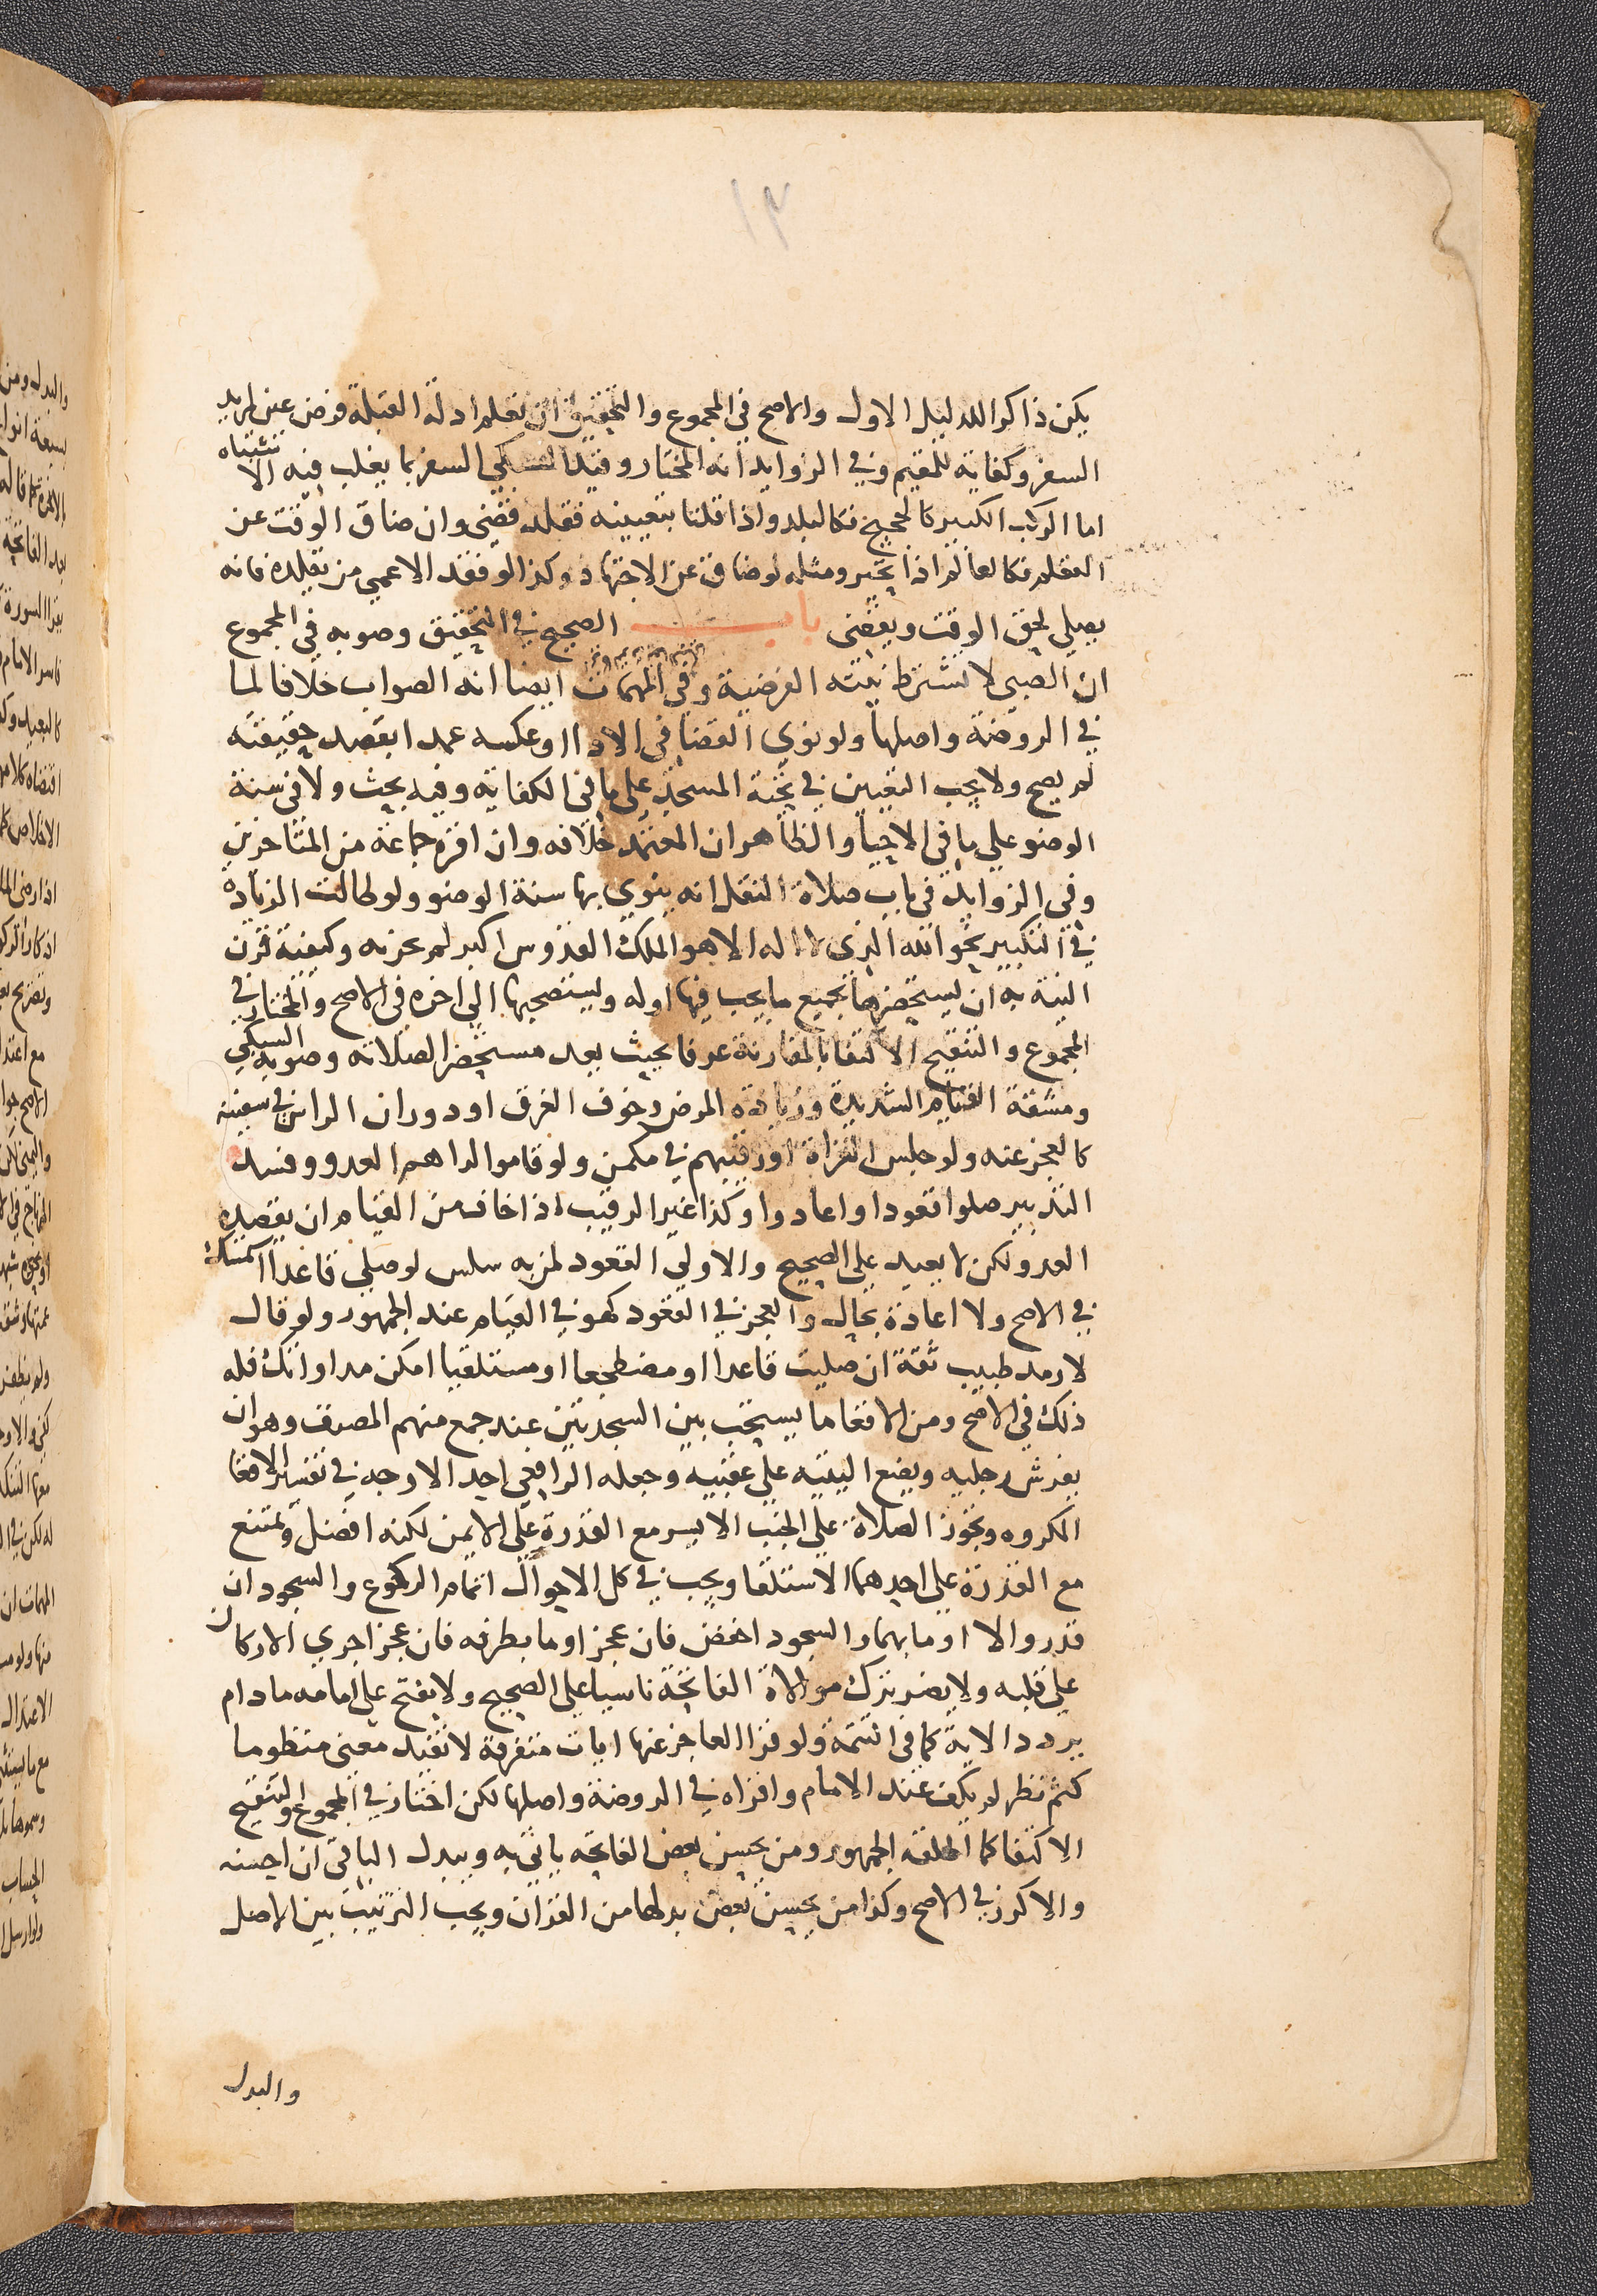 ١٣
يكن ذاكرا للدليل الاول والاصح في المجموع والتحقيق ان تعلم ادلة القبلة فرض عين لمريد
السفر وكفاية للمقيم وفي الزوايد انه المختار وقيد السبكي السفر بما يغلب فيه الا شتباه
اما الركب الكبير كالحجيج فكالبلد واذا قلنا بتعيينه فقلد قضى وان ضاق الوقت عن
التعلم فكالعالم اذا تحير ومثله لو ضاق عن الاجتهاد وكذا لو فقد الاعمى من يقلده فانه
يصلي لحق الوقت ويقضي باب الصحيح في التحقيق وصوبه في المجموع
ان الصبي لا تشترط نيته الفرضية وفي المهمات ايضا انه الصواب خلافا لما
في الروضة واصلها ولو نوى القضا في الاداا وعكسه عمدا بقصد حقيقته
لم يصح ولا يجب التعيين في تحية المسجد على ما في الكفاية وفيه بحث ولا في سنة
الوضو على ما في الاحيا والظاهر ان المعتمد خلافه وان اقره جماعة من المتاخرين
وفي الزوايد في باب صلاة النفل انه ينوي بها سنة الوضو ولو طالت الزيادة
في التكبير نحو الله الذي لا اله الا هو الملك القدوس اكبر لم تجزيه وكيفية قرن
النية به ان يستحضرها بجميع ما يجب فيها اوله ويستصحبها الى اخره في الاصح والمختار في
المجموع والتنقيح الاكتفا بالمقارنة عرفا بحيث يعد مستحضرا لصلاته وصوبه السبكي
ومشقة القيام الشديدة وزيادة المرض وخوف الغرق او دوران الراس في سفينة
كالعجز عنه ولو جلس الغزاة او رقيبهم في مكمن ولو قاموا لراهم العدو وفسد
التدبير صلوا قعودا واعادوا وكذا غير الرقيب اذا خاف من القيام ان يقصده
العدو لكن لا يعيد على الصحيح والاولى القعود لمن به سلس لو صلى قاعدا استمسك
في الاصح ولا اعادة بحال والعجز في القعود كهو في القيام عند الجمهور ولو قال
لارمد طبيب ثقة ان صليت قاعدا او مضطجعا او مستلقيا امكن مداواتك فله
ذلك في الاصح ومن الاقعا ما يستحب بين السجدتين عند جمع منهم المصنف وهو ان
يفرش رجليه ويضع اليتيه على عقبيه وجعله الرافعي احد الاوجه في تفسير الاقعا
المكروه وتجوز الصلاة على الجنب الايسر مع القدرة على الايمن لكنه افضل ويمتنع
مع القدرة على احدهما الاستلقا ويجب في كل الاحوال اتمام الركوع والسجود ان
قدر والا اوما بهما والسجود اخفض فان عجز اوما بطرفه فان عجز اجرى الاركان
على قلبه ولا يضر ترك موالاة الفاتحة ناسيا على الصحيح ولا يفتح على امامه ما دام
يردد الاية كما في التتمة ولو قرا العاجز عنها ايات متفرقة لا تفيد معنى منظوما
كثم نظر لم يكف عند الامام واقراه في الروضة واصلها لكن اختار في المجموع والتنقيح
الاكتفا كما اطلقه الجمهور ومن يحسن بعض الفاتحه ياتي به ويبدل الباقي ان احسنه
والا كرر في الاصح وكذا من يحسن بعض بدلها من القران ويجب الترتيب بين الاصل
والبدل